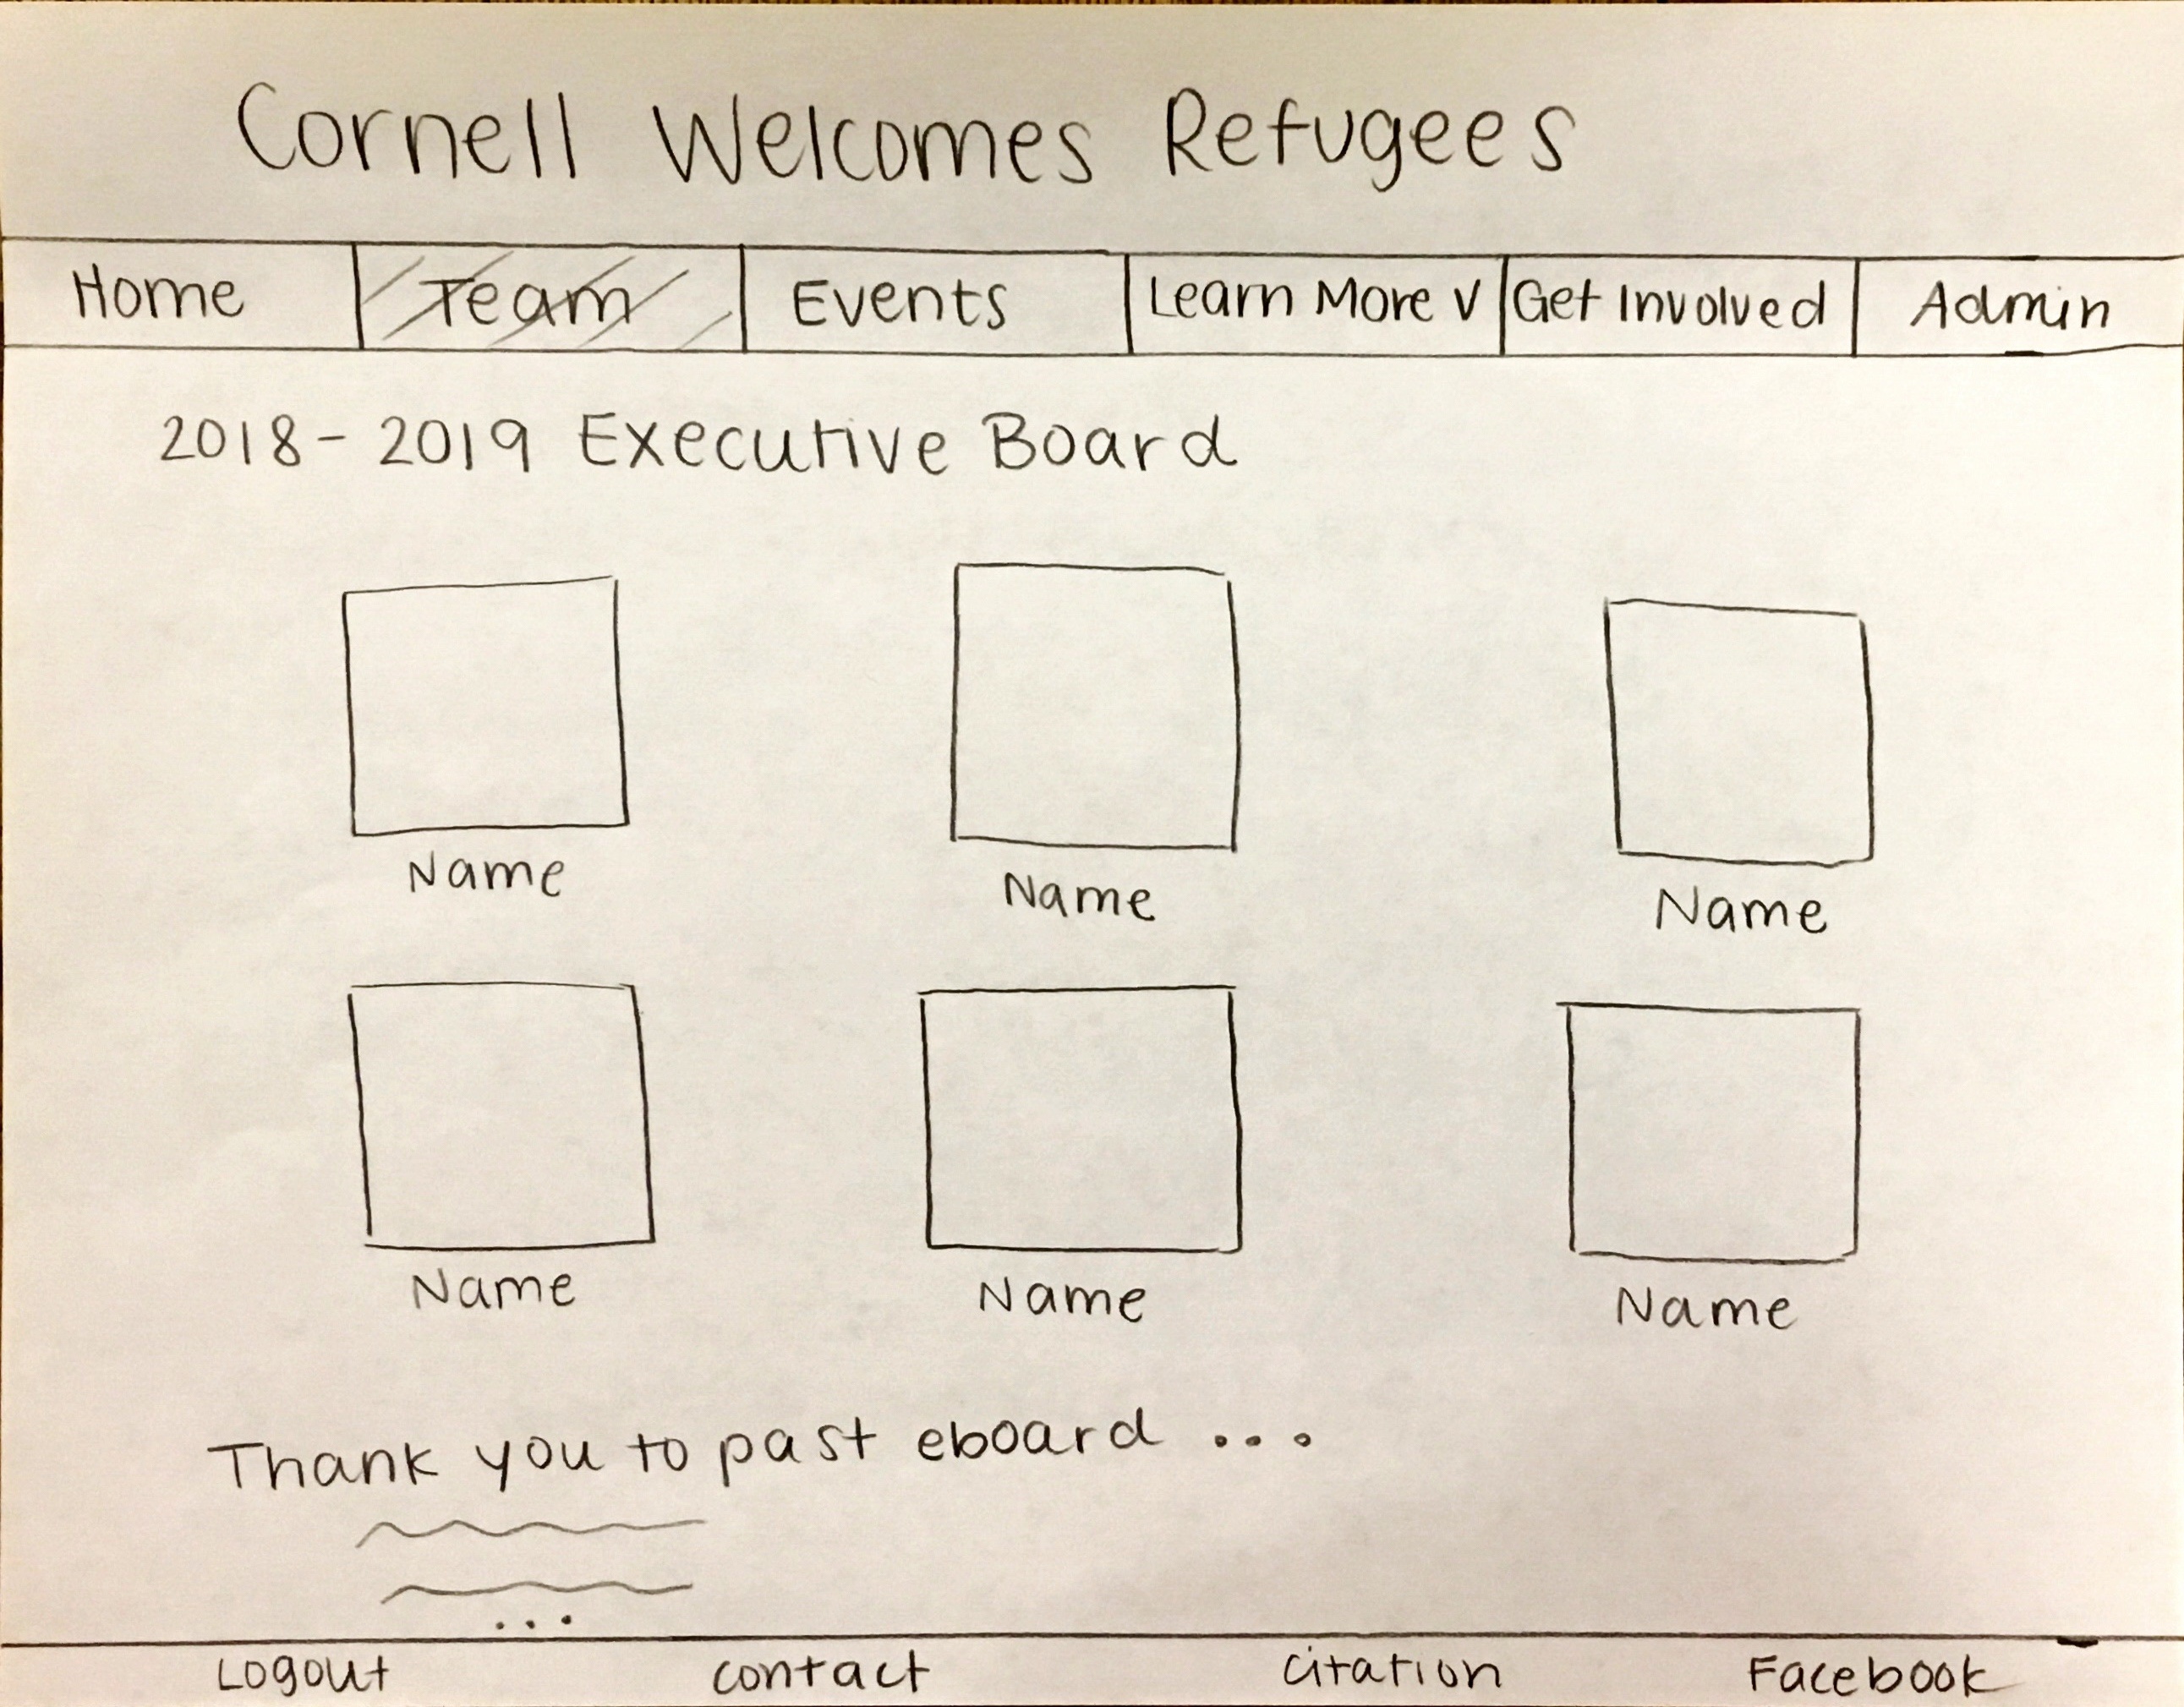 Cornell Welcomes Refugees
Home Team Events Learn More V Get Involved Admin
2018 - 2019 Executive Board
Name Name Name
Name Name Name
Thank you to past eboard ...
...
Logout contact citation Facebook